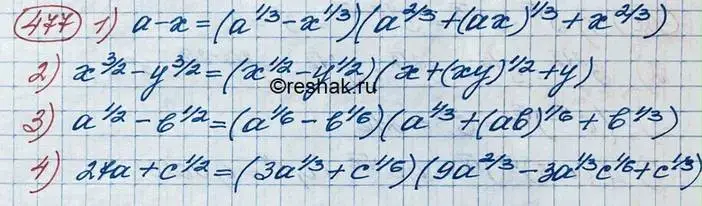 477 1) a-x=(a^{1/3}-x^{1/3})(a^{2/3}+(ax)^{1/3}+x^{2/3})
2) x^{3/2}-y^{3/2}=(x^{1/2}-y^{1/2})(x+(xy)^{1/2}+y)
©reshak.ru
3) a^{1/2}-b^{1/2}=(a^{1/6}-b^{1/6})(a^{1/3}+(ab)^{1/6}+b^{1/3})
4) 27a+c^{1/2}=(3a^{1/3}+c^{1/6})(9a^{2/3}-3a^{1/3}c^{1/6}+c^{1/3})